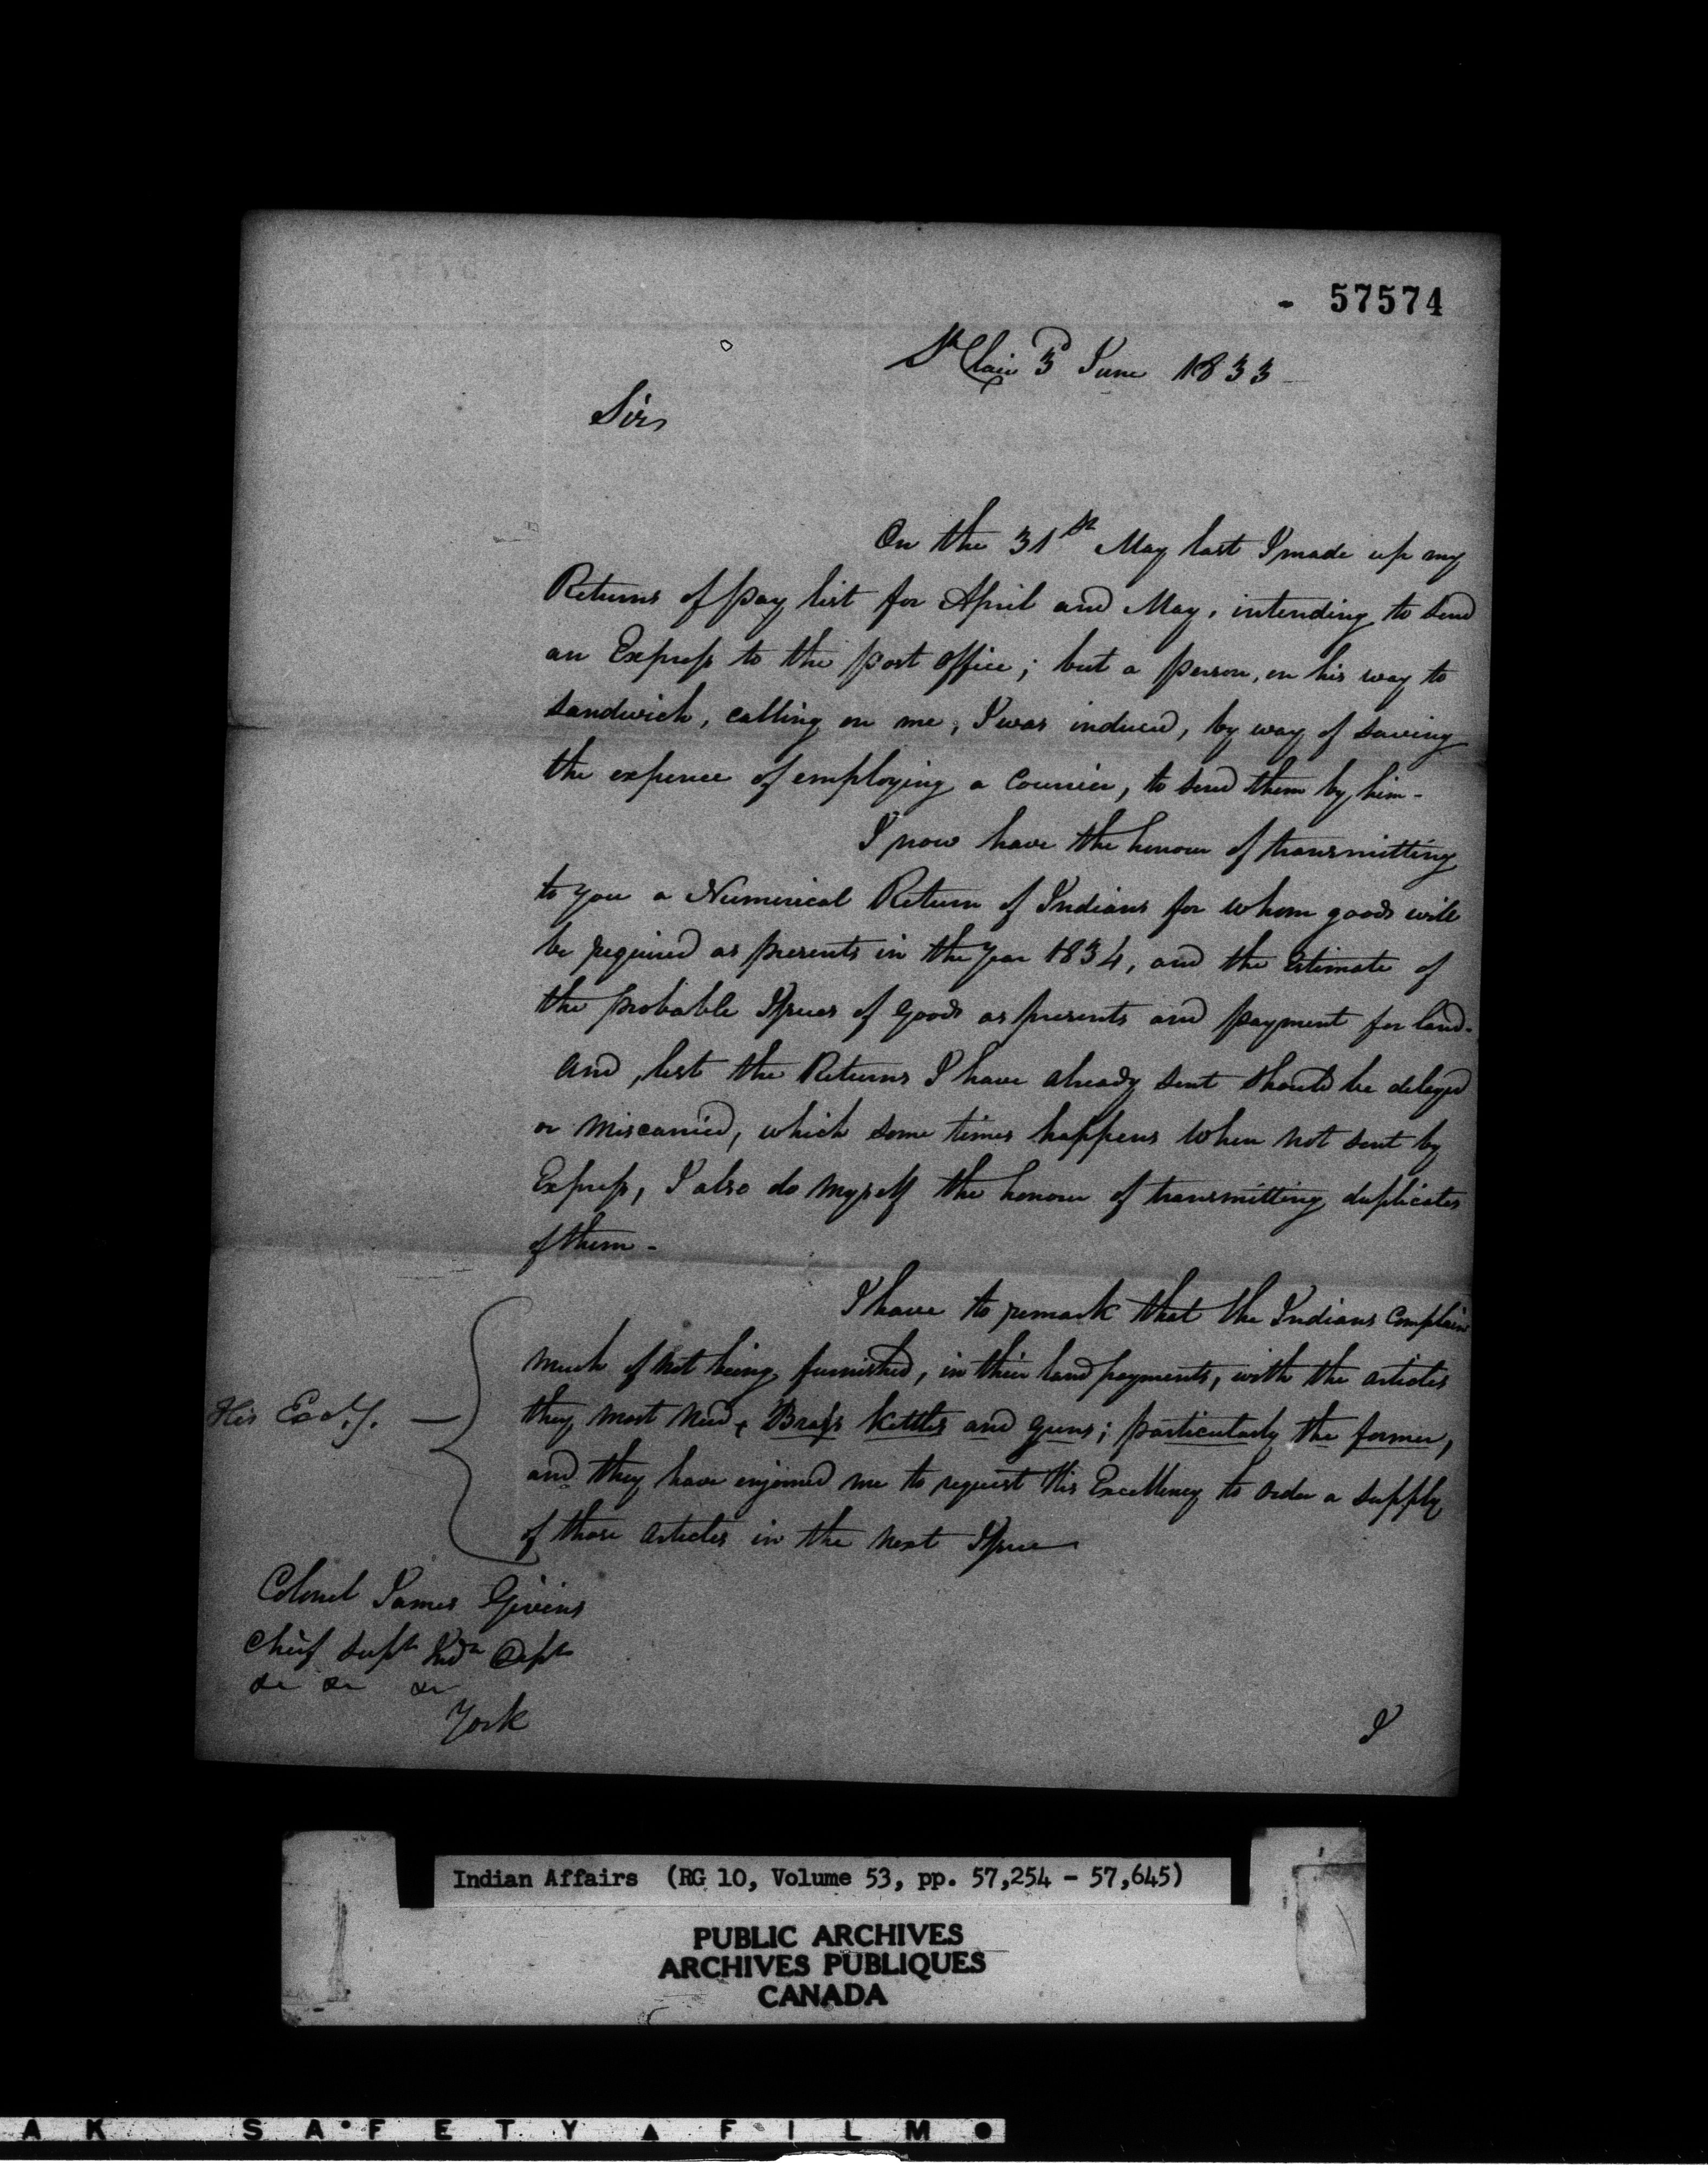 - 57574
St Clair 3d June 1833
Sir,
On the 31st May last I made up my
Returns of pay list for April and May, intending to send
an Express to the post office; but a person, on his way to
Sandwich, calling on me, I was induced, by way of saving
the expence of employing a Courier, to send them by him -
I now have the honour of transmitting
to you a Numerical Return of Indians for whom goods will
be required as presents in the year 1834, and the Estimate of
the probable Issues of goods as presents and payment for land -
And, lest the Returns I have already sent should be delayed
or miscarried, which some times happens when not sent by
Express, I also do myself the honour of transmitting duplicates
of them -
I have to remark that the Indians complain
much of not being furnished, in their land payments, with the articles
His Excy. — they most need, Brass Kettles and guns; particularly the former,
and they have enjoined me to request His Excellency to order a supply
of those articles in the next Issue
Colonel James Givins
Chief Supt Indn Dept
&c &c &c
York
I
Indian Affairs (RG 10, Volume 53, pp. 57,254 - 57,645)
PUBLIC ARCHIVES
ARCHIVES PUBLIQUES
CANADA
AK SAFETY FILM